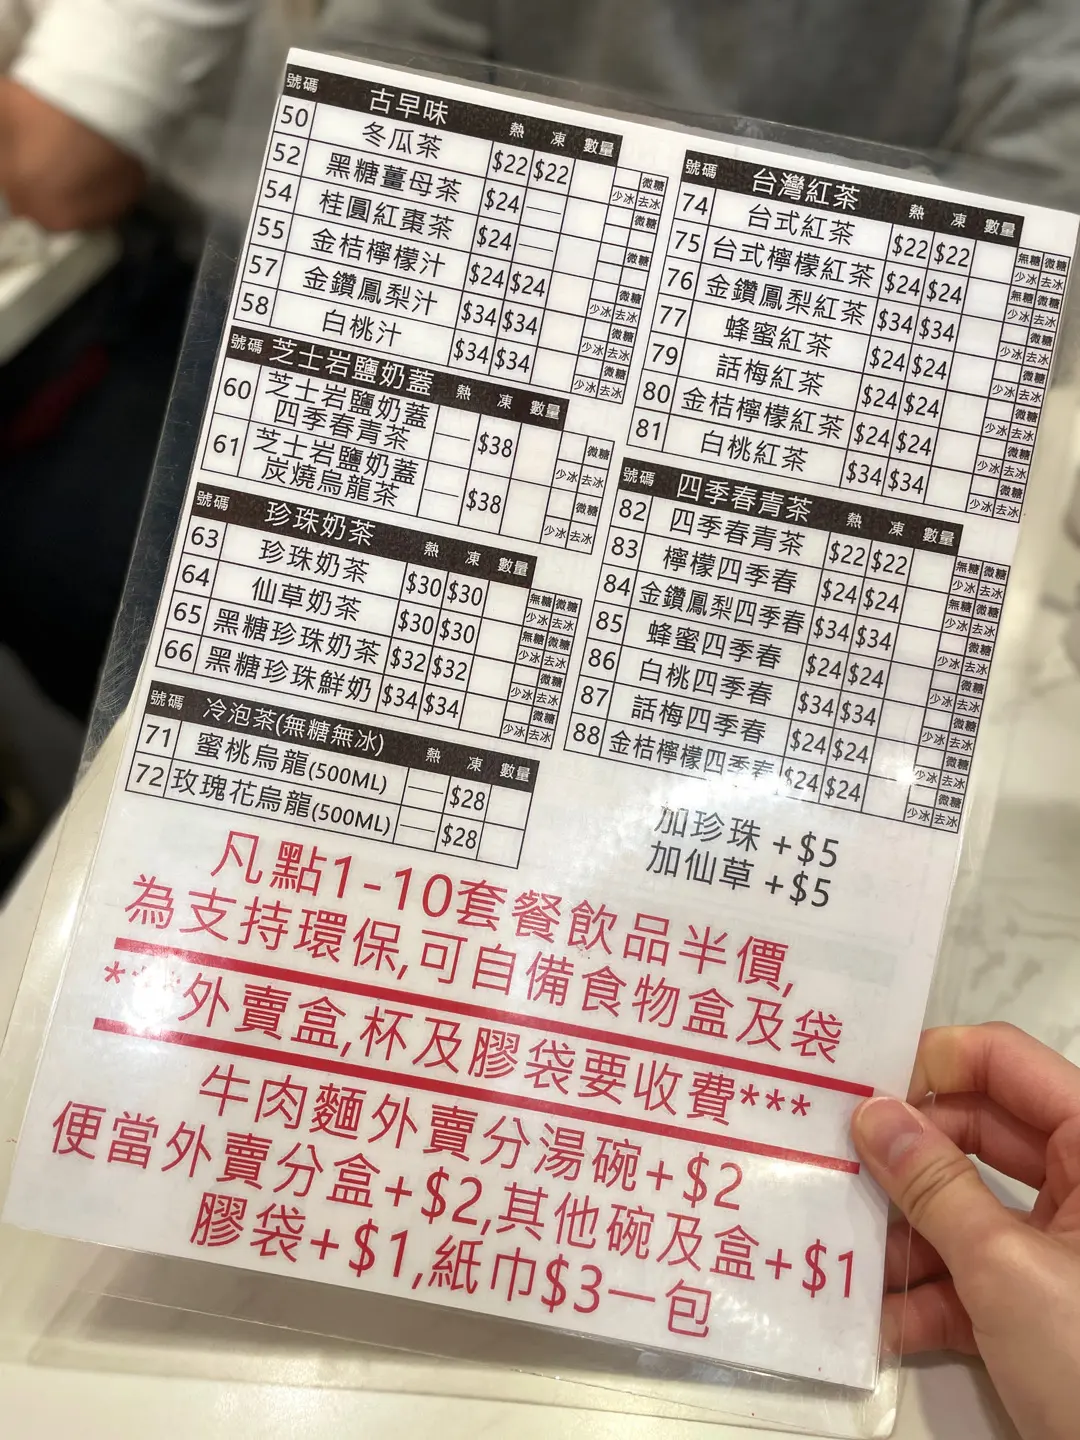 號碼 古早味 熱 凍 數量
50 冬瓜茶 $22 $22 微糖 少冰 去冰
52 黑糖薑母茶 $24 — 微糖
54 桂圓紅棗茶 $24 — 微糖
55 金桔檸檬汁 $24 $24 微糖 少冰 去冰
57 金鑽鳳梨汁 $34 $34 微糖 少冰 去冰
58 白桃汁 $34 $34 微糖 少冰 去冰
號碼 芝士岩鹽奶蓋 熱 凍 數量
60 芝士岩鹽奶蓋
四季春青茶 — $38 微糖 少冰 去冰
61 芝士岩鹽奶蓋
炭燒烏龍茶 — $38 微糖 少冰 去冰
號碼 珍珠奶茶 熱 凍 數量
63 珍珠奶茶 $30 $30 無糖 微糖 少冰 去冰
64 仙草奶茶 $30 $30 無糖 微糖 少冰 去冰
65 黑糖珍珠奶茶 $32 $32 微糖 少冰 去冰
66 黑糖珍珠鮮奶 $34 $34 微糖 少冰 去冰
號碼 冷泡茶(無糖無冰) 熱 凍 數量
71 蜜桃烏龍(500ML) — $28
72 玫瑰花烏龍(500ML) — $28
號碼 台灣紅茶 熱 凍 數量
74 台式紅茶 $22 $22 無糖 微糖 少冰 去冰
75 台式檸檬紅茶 $24 $24 無糖 微糖 少冰 去冰
76 金鑽鳳梨紅茶 $34 $34 微糖 少冰 去冰
77 蜂蜜紅茶 $24 $24 微糖 少冰 去冰
79 話梅紅茶 $24 $24 微糖 少冰 去冰
80 金桔檸檬紅茶 $24 $24 微糖 少冰 去冰
81 白桃紅茶 $34 $34 微糖 少冰 去冰
號碼 四季春青茶 熱 凍 數量
82 四季春青茶 $22 $22 無糖 微糖 少冰 去冰
83 檸檬四季春 $24 $24 無糖 微糖 少冰 去冰
84 金鑽鳳梨四季春 $34 $34 微糖 少冰 去冰
85 蜂蜜四季春 $24 $24 微糖 少冰 去冰
86 白桃四季春 $34 $34 微糖 少冰 去冰
87 話梅四季春 $24 $24 微糖 少冰 去冰
88 金桔檸檬四季春 $24 $24 微糖 少冰 去冰
加珍珠 +$5
加仙草 +$5
凡點1-10套餐飲品半價,
為支持環保,可自備食物盒及袋
***外賣盒,杯及膠袋要收費***
牛肉麵外賣分湯碗+$2
便當外賣分盒+$2,其他碗及盒+$1
膠袋+$1,紙巾$3一包